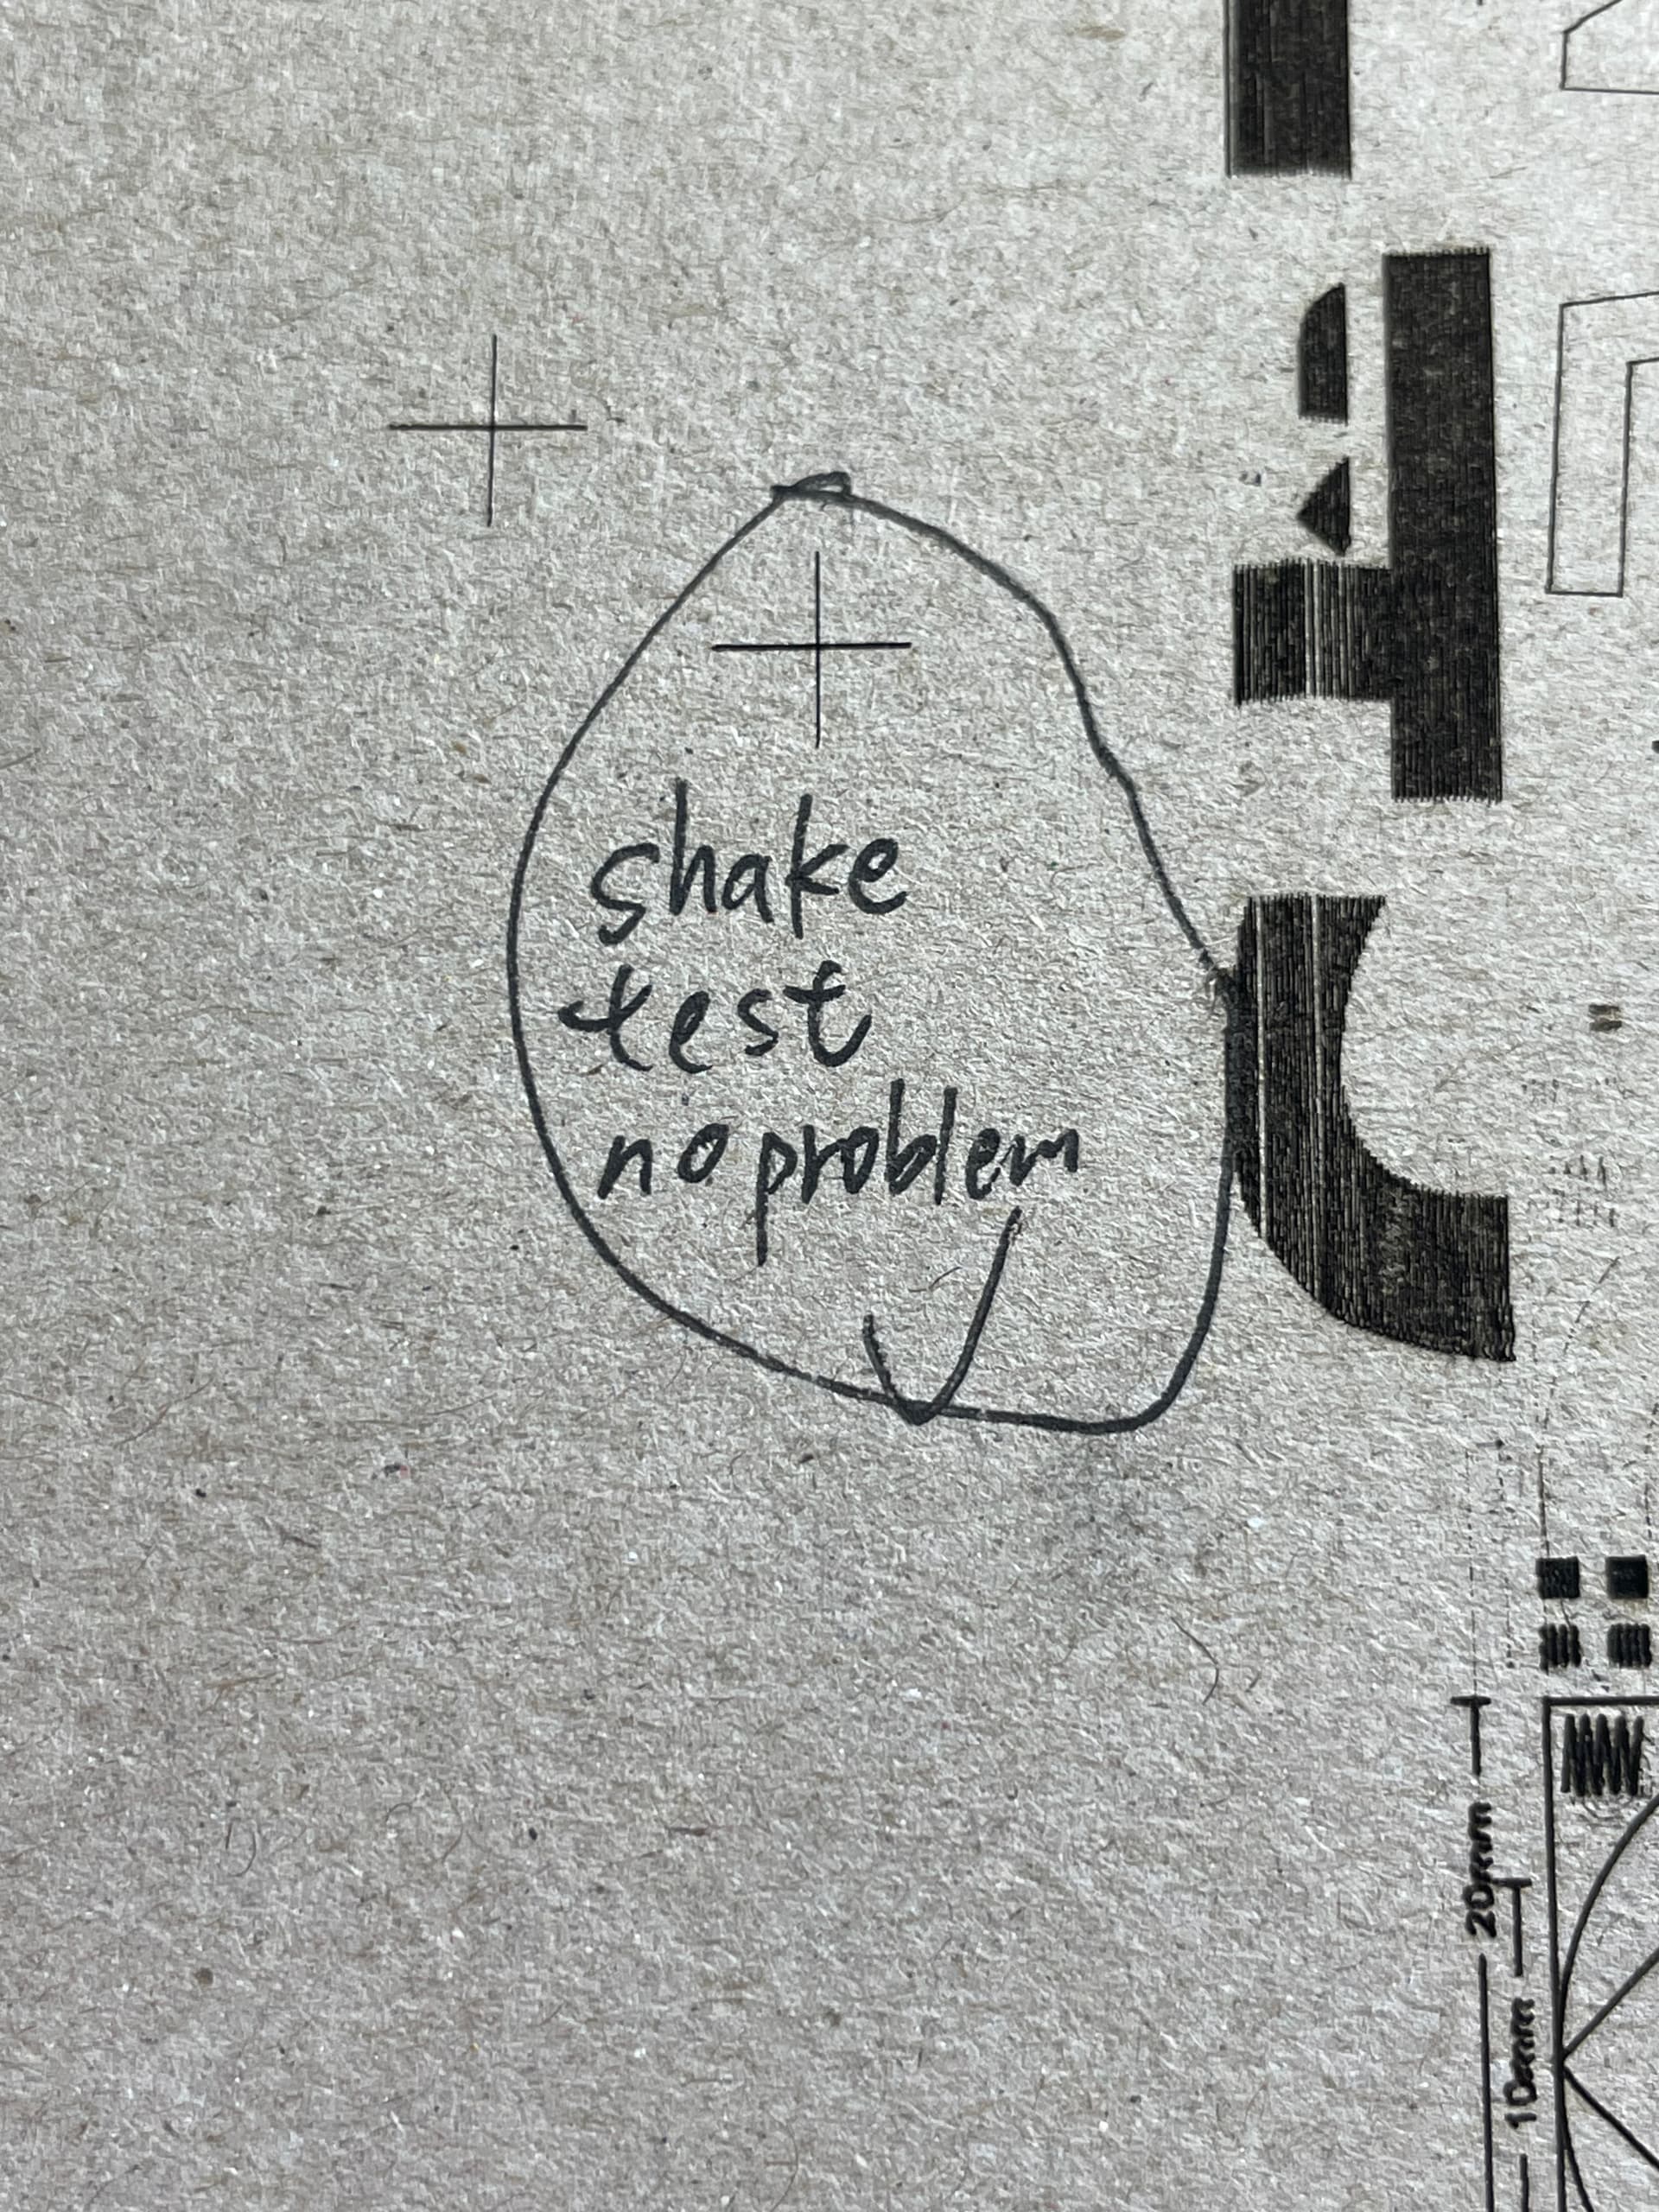 shake
test
no problem
20mm
10mm